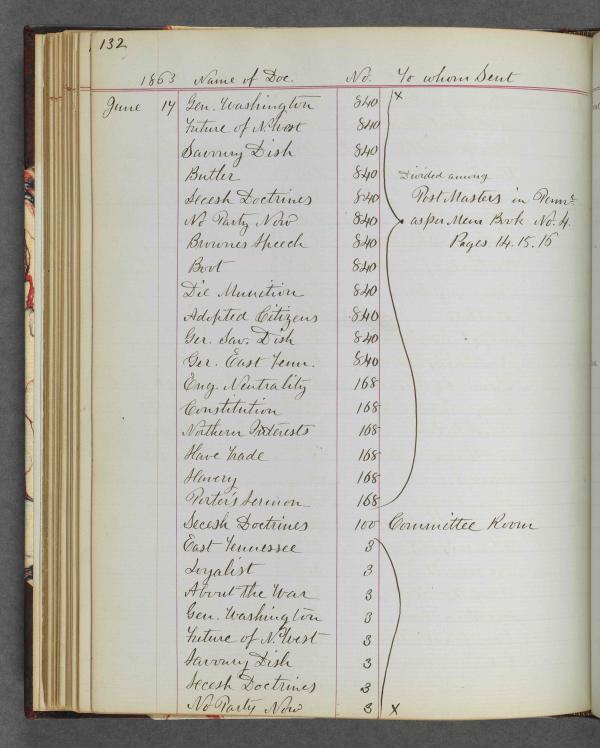 132
1863 Name of Doc. No. To whom Sent
June 14 Gen. Washington 840 x
Future of N. West 840
Savoury Dish 840
Butler 840 Divided among
Secesh Doctrines 840 Post Masters in Penn.
No Party Now 840 as per Mem Book No. 4.
Brownes Speech 840 Pages 14. 15. 16
Boot 840
Die Munition 840
Adopted Citizens 840
Ger. Sav. Dish 840
Ger. East Tenn. 840
Eng. Neutrality 168
Constitution 168
Northern Interests 168
Slave Trade 168
Slavery 168
Porter's Sermon 168
Secesh Doctrines 100 Committee Room
East Tennessee 3
Loyalist 3
About the War 3
Gen. Washington 3
Future of N. West 3
Savoury Dish 3
Secesh Doctrines 3
No Party Now 3 x